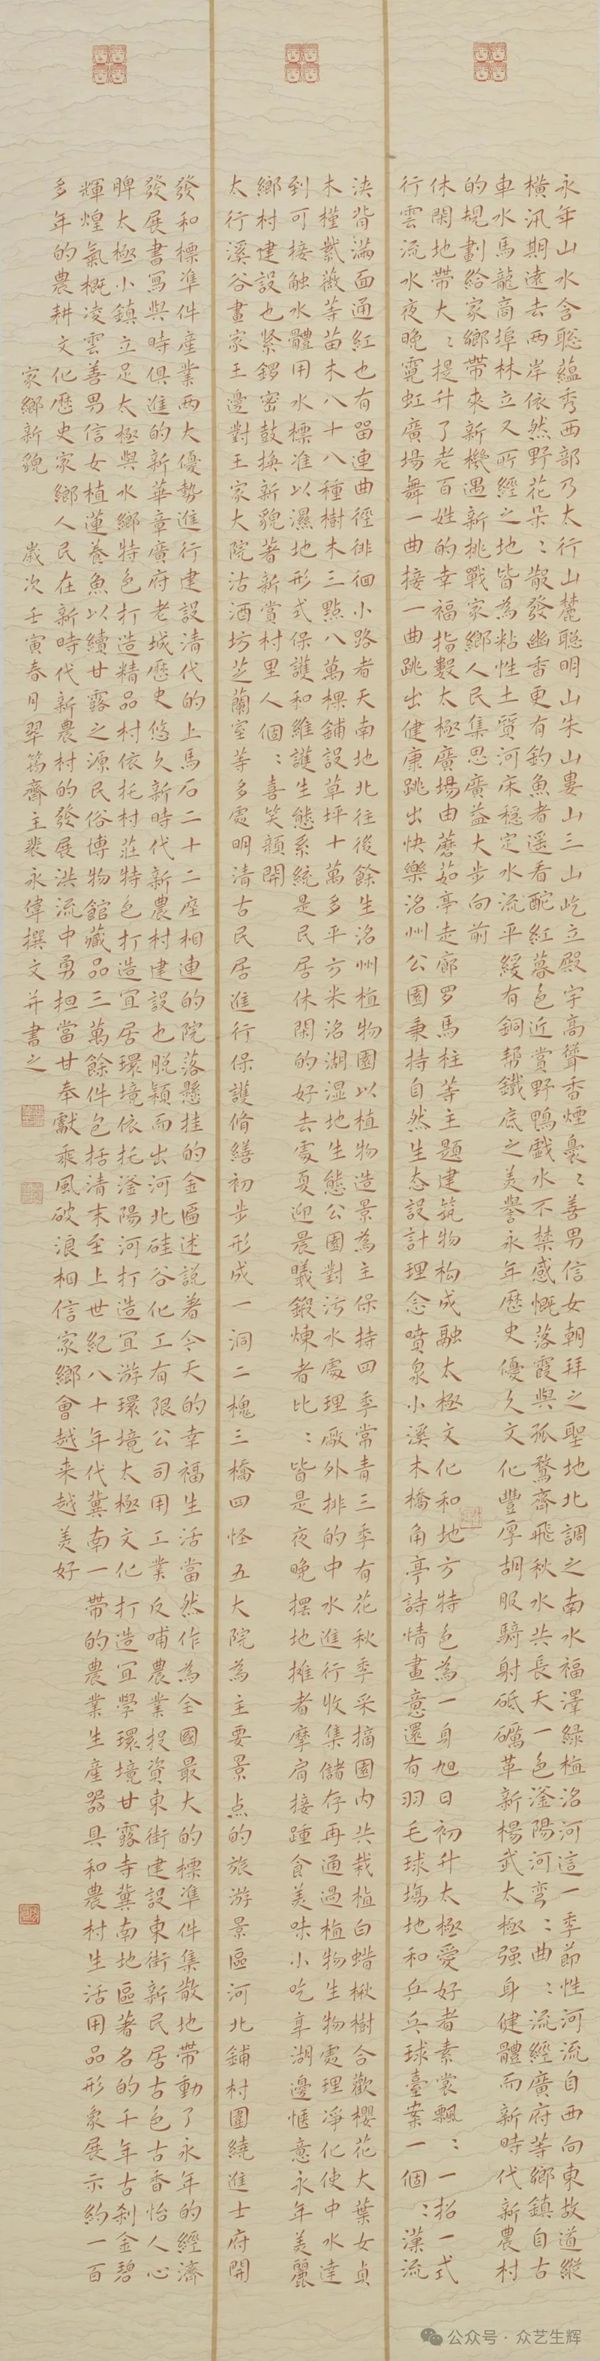 永年山水含聡蘊秀西部乃太行山麓聰明山朱山婁山三山屹立殿宇高聳香煙裊〻善男信女朝拜之聖地北調之南水福澤綠植洺河這一季節性河流自西向東故道縱
橫汛期遠去兩岸依然野花朵〻散發幽香更有釣魚者遥看酡紅暮色近賞野鴨戲水不禁感慨落霞與孤鶩齊飛秋水共長天一色滏陽河彎〻曲〻流經廣府等鄉鎮自古
車水馬龍高埠林立又所經之地皆為粘性土質河床穩定水流平緩有銅幫鐵底之美譽永年歷史優久文化豐厚胡服騎射砥礪革新楊武太極强身健體而新時代新農村
的規劃給家鄉帶來新機遇新挑戰家鄉人民集思廣益大步向前
休閑地帶大〻提升了老百姓的幸福指數太極廣場由蘑茹亭走廊罗馬柱等主題建筑物构成融太極文化和地方特色為一身旭日初升太極愛好者素裳飄〻一招一式
行雲流水夜晚霓虹廣場舞一曲接一曲跳出健康跳出快樂洺州公園秉持自然生态設計理念噴泉小溪木橋角亭詩情畫意還有羽毛球場地和乒乓球臺案一個〻漢流
浹背滿面通紅也有畱連曲徑徘徊小路者天南地北往後餘生洺州植物園以植物造景為主保持四季常青三季有花秋季采摘園内共栽植白蜡楸樹合歡櫻花大葉女貞
木槿紫薇等苗木八十八種樹木三點八萬棵鋪設草坪十萬多平方米洺湖湿地生態公園對污水處理厰外排的中水進行收集儲存再通過植物生物處理凈化使中水達
到可接触水體用水標准以濕地形式保護和維護生態系統是民居休閑的好去處夏迎晨曦鍛煉者比〻皆是夜晚擺地攤者摩肩接踵食美味小吃享湖邊愜意永年美麗
鄉村建設也緊鑼密鼓換新貌著新賞村里人個〻喜笑顏開
太行溪谷畫家王邊對王家大院沽酒坊芝蘭室等多處明清古民居進行保護脩繕初步形成一洞二槐三橋四怪五大院為主要景点的旅游景區河北鋪村圍繞進士府開
發和標準件産業兩大優勢進行建設清代的上馬石二十二座相連的院落懸挂的金匾述說着今天的幸福生活當然作為全國最大的標準件集散地帶動了永年的經濟
發展書寫與時俱進的新華章廣府老城歷史悠久新時代新農村建設也脫穎而出河北硅谷化工有限公司用工業反哺農業投資東街建設東街新民居古色古香怡人心
脾太極小鎮立足太極與水鄉特色打造精品村依托村莊特色打造宜居環境依托滏陽河打造宜游環境太極文化打造宜學環境甘露寺冀南地區著名的千年古刹金碧
輝煌氣概凌雲善男信女植蓮養魚以續甘露之源民俗博物館藏品三萬餘件包括清末至上世紀八十年代冀南一帶的農業生産器具和農村生活用品形象展示約一百
多年的農耕文化歷史家鄉人民在新時代新農村的發展洪流中勇担當甘奉獻乘風破浪相信家鄉會越来越美好
家鄉新貌
歲次壬寅春月翠篛齋主裴永偉撰文并書之
公众号·众艺生辉